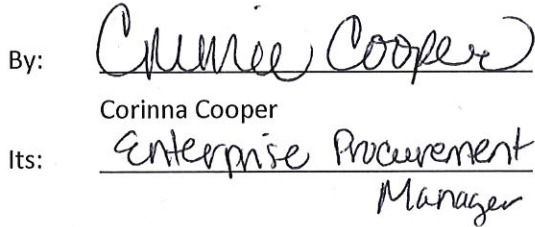 By: Cooper
Corinna Cooper
Its: Enterprise Procurement
Manager